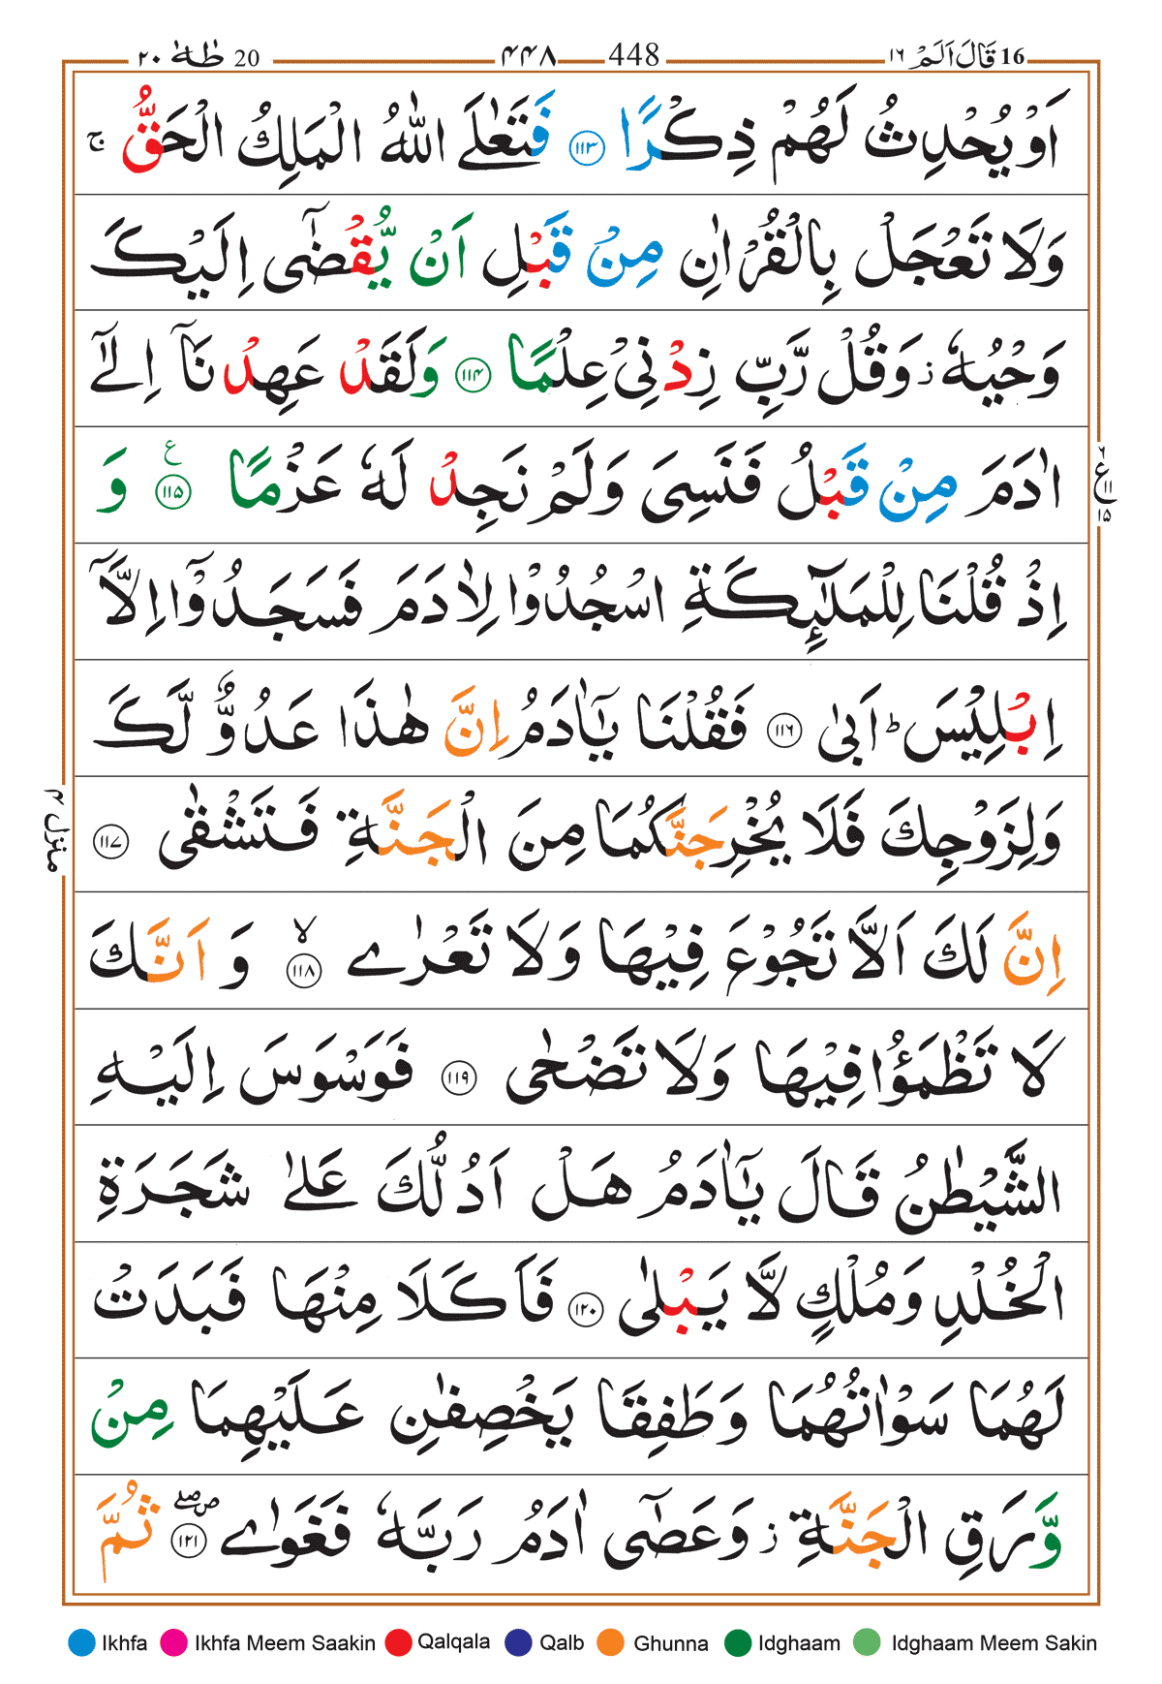 16 قَالَ اَلَمْ ١٦ 448 ٤٤٨ 20 طٰهٰ ٢٠
اَوْ يُحْدِثُ لَهُمْ ذِكْرًا ١١٣ فَتَعٰلَى اللّٰهُ الْمَلِكُ الْحَقُّ ۚ
وَلَا تَعْجَلْ بِالْقُرْاٰنِ مِنْ قَبْلِ اَنْ يُّقْضٰۤى اِلَيْكَ
وَحْيُهٗ ز وَقُلْ رَّبِّ زِدْنِيْ عِلْمًا ١١٤ وَلَقَدْ عَهِدْنَاۤ اِلٰۤى
اٰدَمَ مِنْ قَبْلُ فَنَسِيَ وَلَمْ نَجِدْ لَهٗ عَزْمًا ١١٥ ع وَ
ع ٦ ١١ ١٥
اِذْ قُلْنَا لِلْمَلٰٓئِكَةِ اسْجُدُوْا لِاٰدَمَ فَسَجَدُوْۤا اِلَّاۤ
اِبْلِيْسَ ؕ اَبٰى ١١٦ فَقُلْنَا يٰۤاٰدَمُ اِنَّ هٰذَا عَدُوٌّ لَّكَ
وَلِزَوْجِكَ فَلَا يُخْرِجَنَّكُمَا مِنَ الْجَنَّةِ فَتَشْقٰى ١١٧
منزل ٤
اِنَّ لَكَ اَلَّا تَجُوْعَ فِيْهَا وَلَا تَعْرٰى ١١٨ لا وَ اَنَّكَ
لَا تَظْمَؤُا فِيْهَا وَلَا تَضْحٰى ١١٩ فَوَسْوَسَ اِلَيْهِ
الشَّيْطٰنُ قَالَ يٰۤاٰدَمُ هَلْ اَدُلُّكَ عَلٰى شَجَرَةِ
الْخُلْدِ وَمُلْكٍ لَّا يَبْلٰى ١٢٠ فَاَكَلَا مِنْهَا فَبَدَتْ
لَهُمَا سَوْاٰتُهُمَا وَطَفِقَا يَخْصِفٰنِ عَلَيْهِمَا مِنْ
وَّرَقِ الْجَنَّةِ ز وَعَصٰۤى اٰدَمُ رَبَّهٗ فَغَوٰى ١٢١ ص صلے ثُمَّ
Ikhfa Ikhfa Meem Saakin Qalqala Qalb Ghunna Idghaam Idghaam Meem Sakin